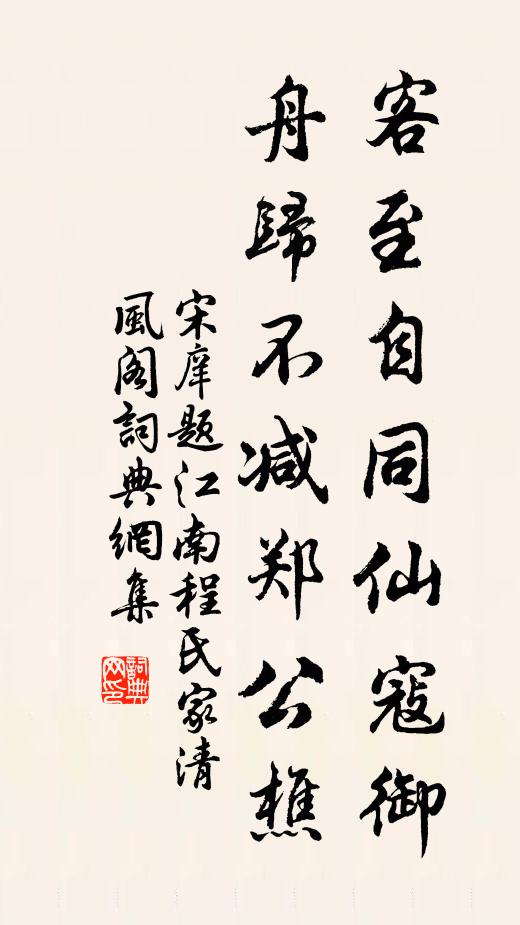 客至自同仙寇御
舟歸不减郑公樵
宋庠题江南程氏家清
風阁詞典網集
詞典网印